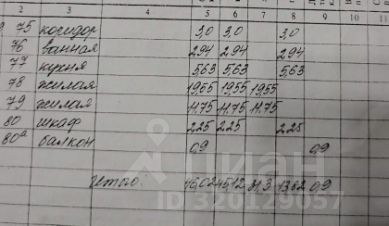 2 3 4 5 6 7 8 9 10 11
75 коридор 3,0 3,0 3,0
76 ванная 2,94 2,94 2,94
77 кухня 5,63 5,63 5,63
78 жилая 19,55 19,55 19,55
79 жилая 11,75 11,75 11,75
80 шкаф 2,25 2,25 2,25
80а балкон 0,9 0,9
Итого: 46,02 45,12 31,3 13,82 0,9
ЦИАН
ID: 320129057